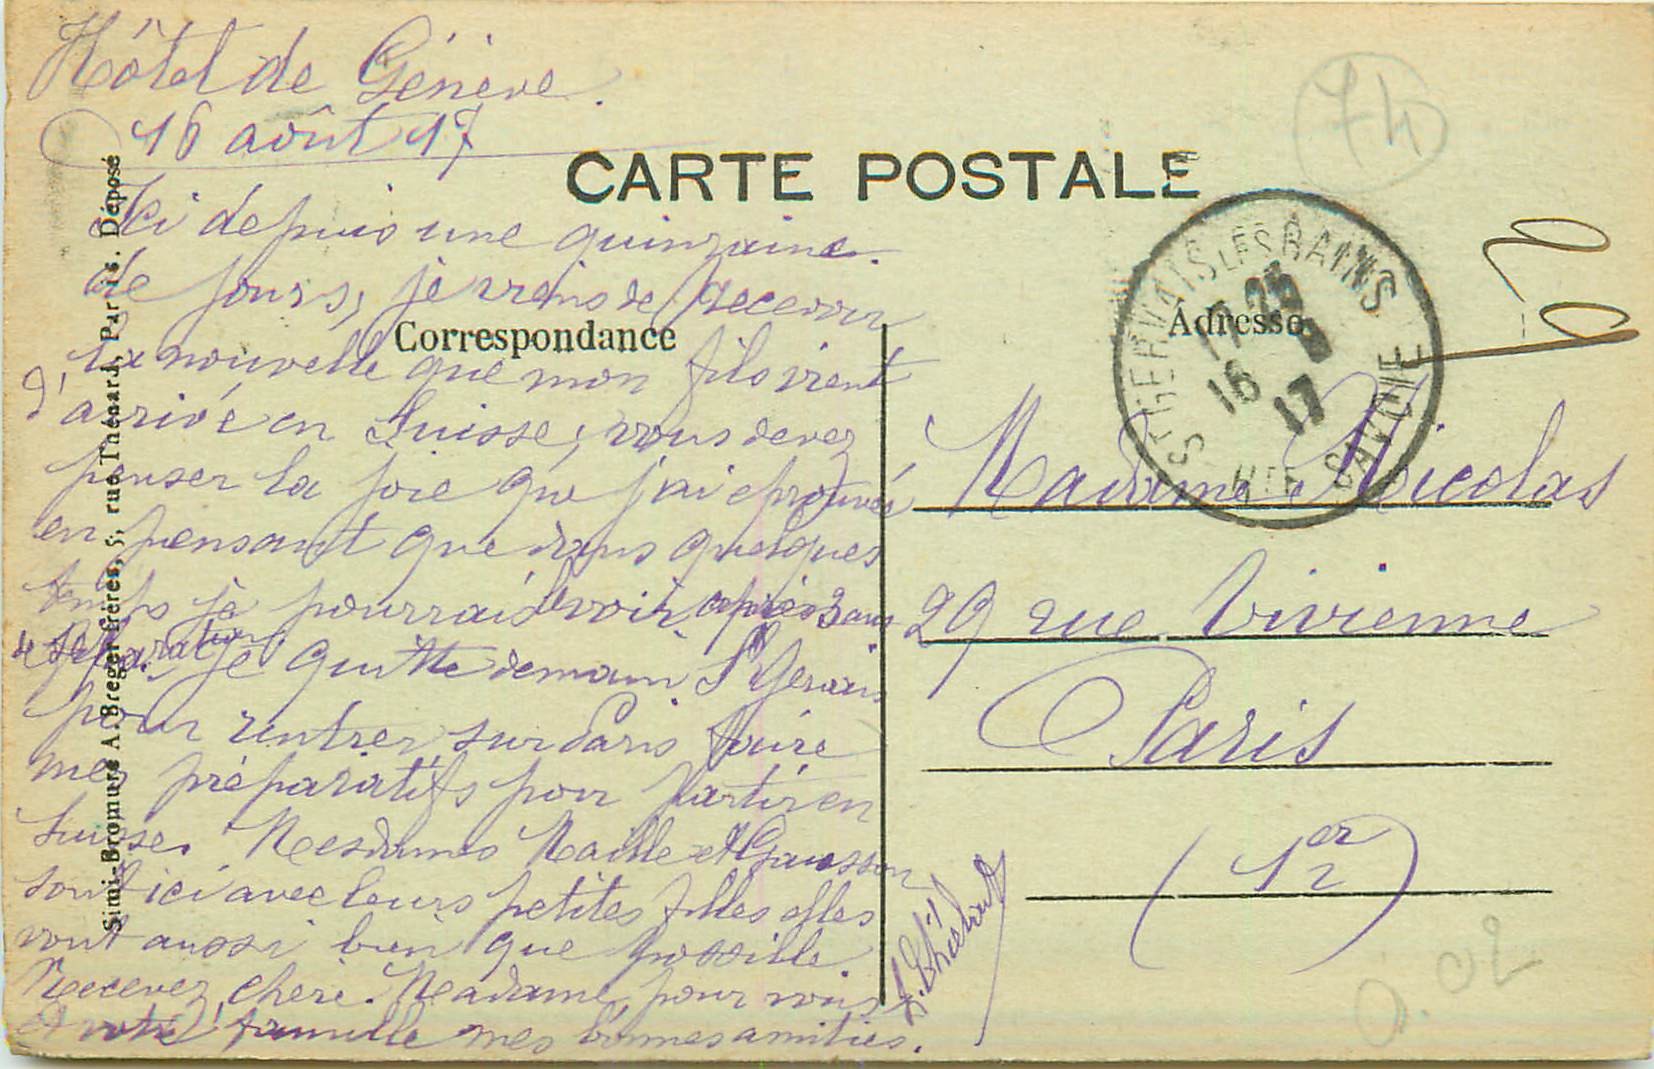 Hôtel de Genève.
16 août 17
Ici depuis une quinzaine
de jours, je viens de recevoir
la nouvelle que mon fils vient
d'arrivé en Suisse, vous devez
penser la joie que j'ai eprouvée
en pensant que dans quelques
temps je pourrai le voir après 3 ans
de séparation. je quitte demain St Gervais
pour rentrer sur Paris faire
mes préparatifs pour partir en
Suisse. Mesdames Maille et
sont ici avec leurs petites filles elles
vont aussi bien que possible.
Recevez, chère Madame, pour vous
et votre famille mes bonnes amitiés.
CARTE POSTALE
Correspondance
Adresse
Simi-Bromure A. Breger frères, 9, rue Thénard, Paris. Déposé
ST GERVAIS LES BAINS
HTE SAVOIE
16 8
17
74
29
Madame Nicolas
29 rue Vivienne
Paris
(12er)
0.02